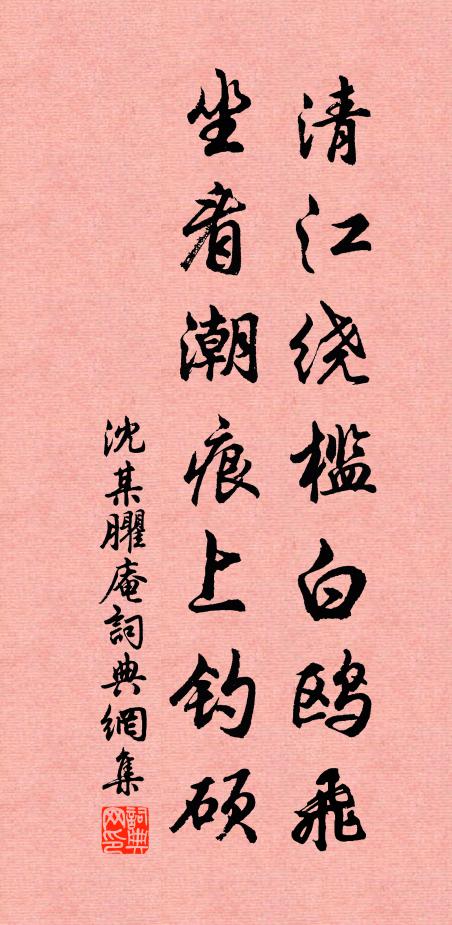 清江绕槛白鸥飞
坐看潮痕上钓硕
沈某臞庵詞典網集
詞典网印